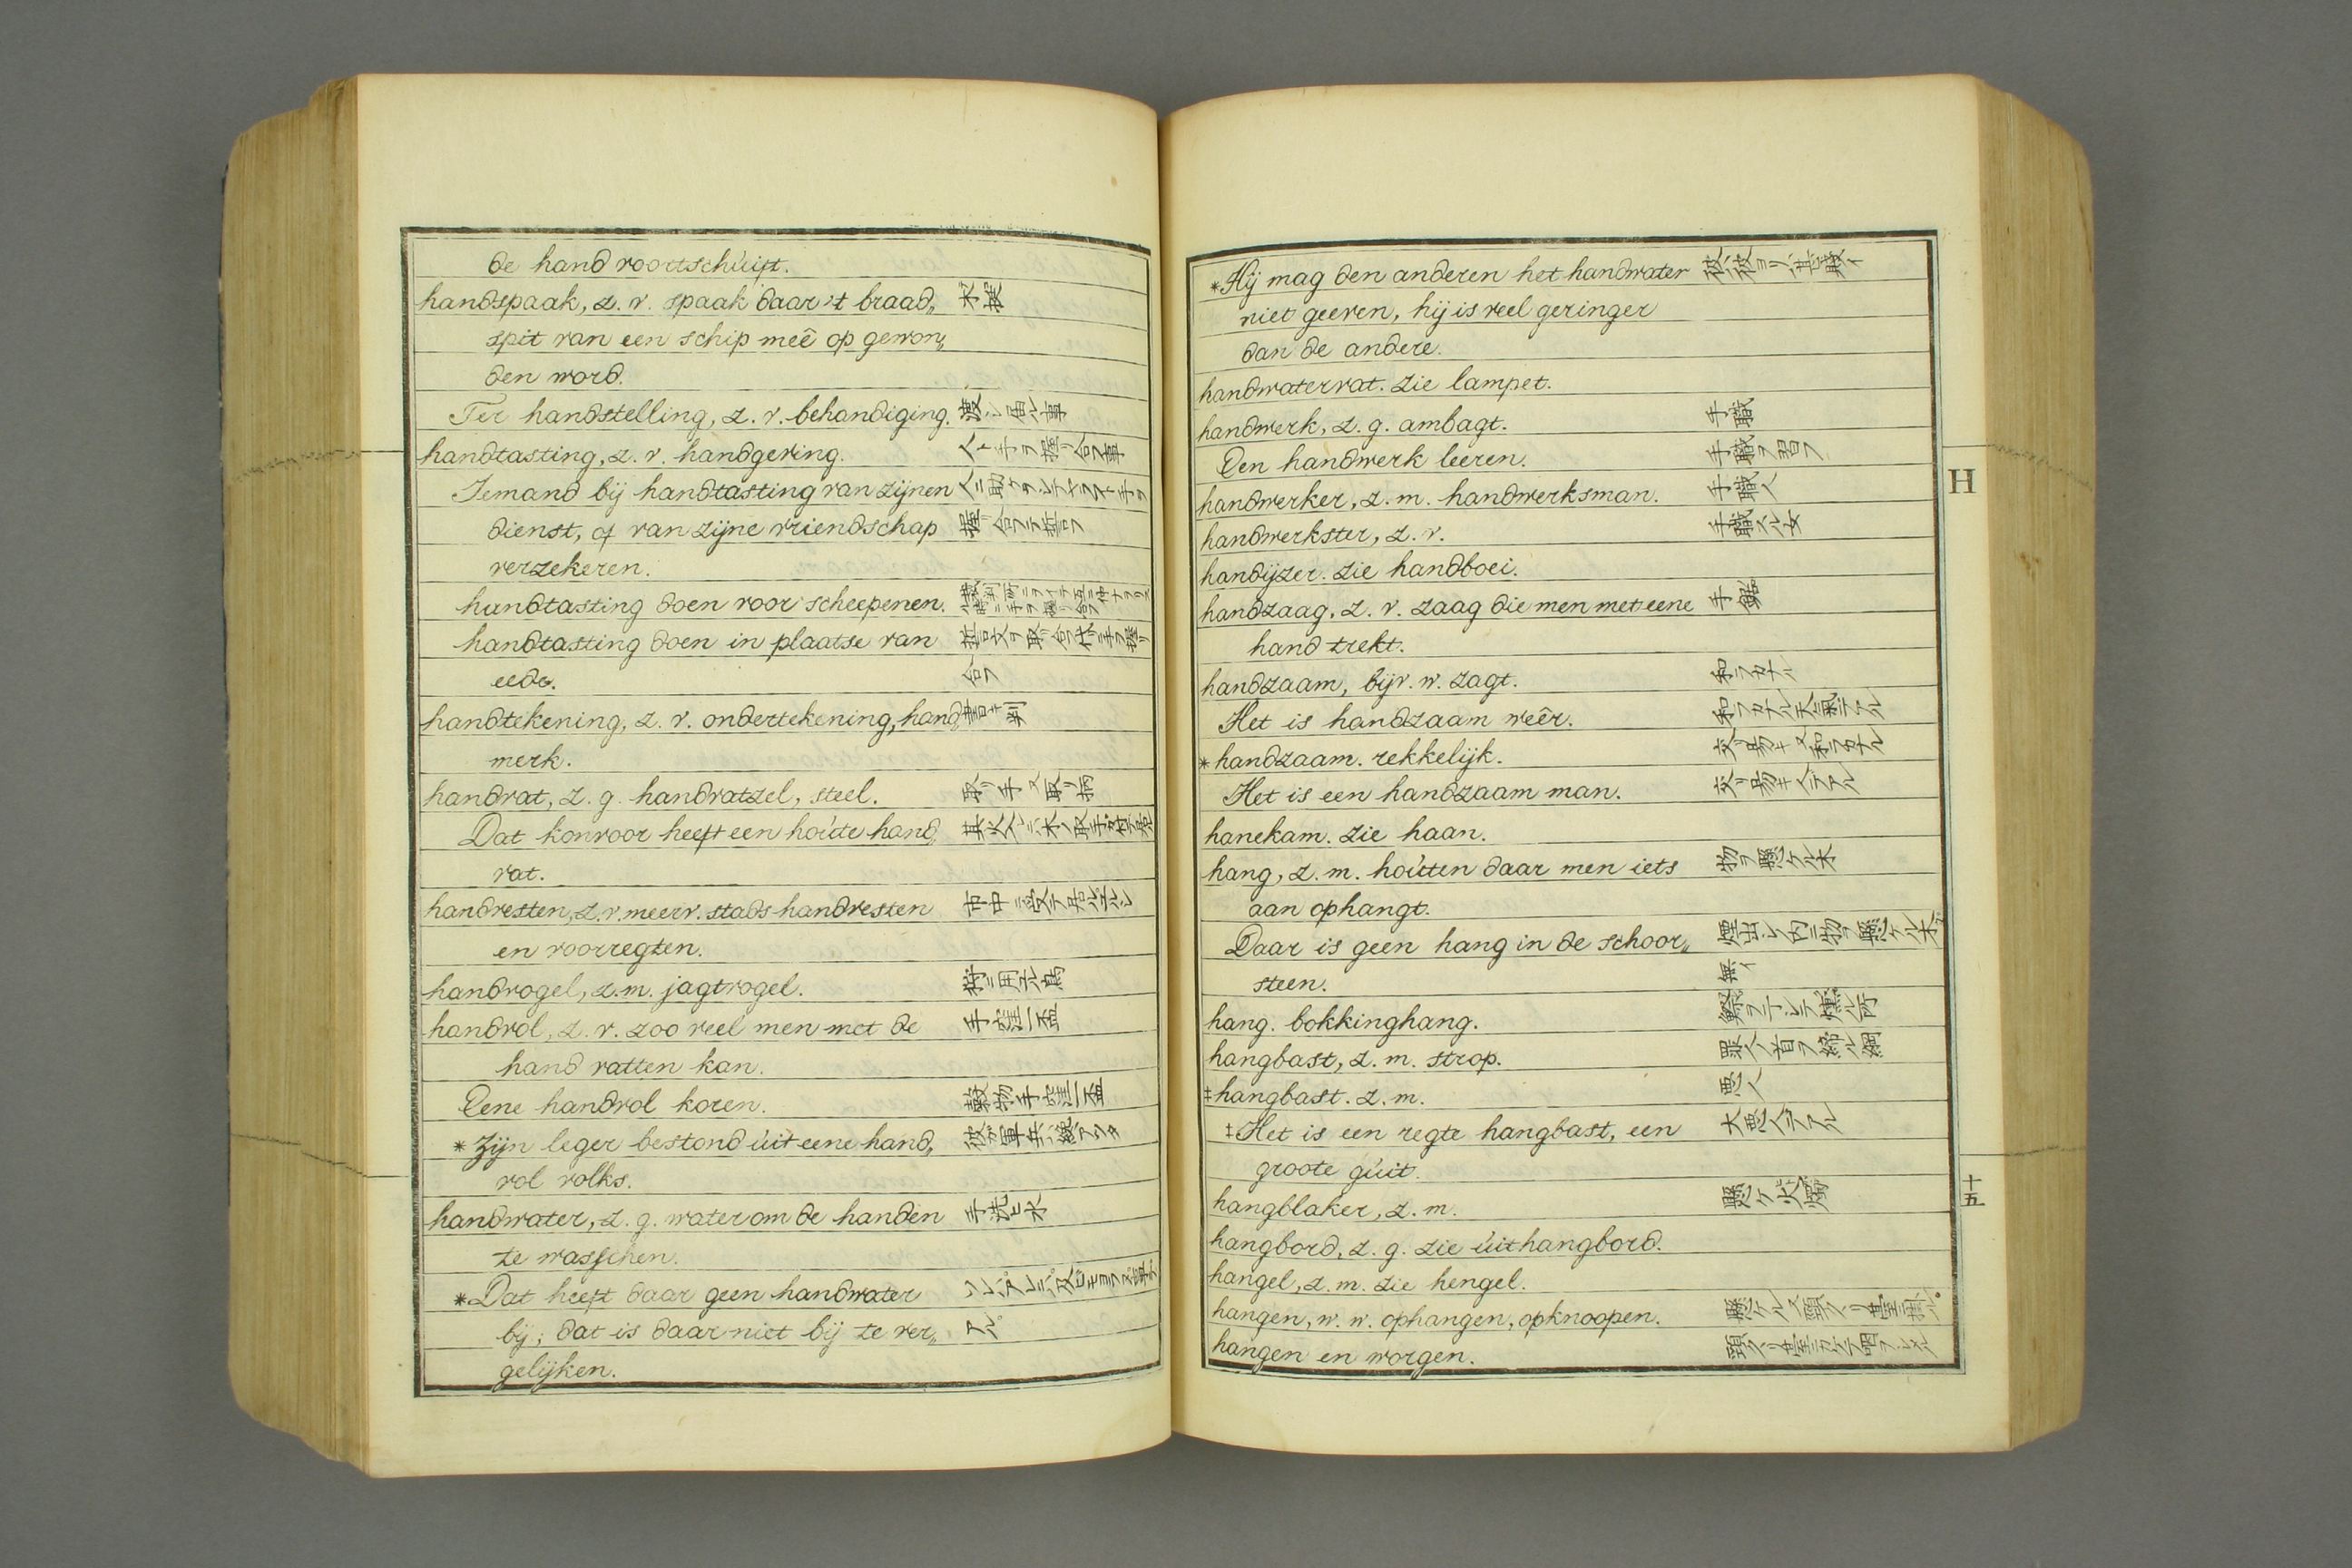 de hand voortschuift.
handspaak, z. v. spaak daar 't braad„
spit van een schip meê op gewon„
den word.
Ter handstelling, z. v. behandiging. 渡シ届ル事
handtasting, z. v. handgeving. 人ト手ヲ握リ合フ事
Iemand bij handtasting van zijnen
dienst, of van zijne vriendschap 握リ合フテ誓フ
verzekeren.
handtasting doen voor scheepenen.
handtasting doen in plaatse van
eede. 合フ
handtekening, z. v. ondertekening, hand„ 書キ判
merk.
handvat, z. g. handvatzel, steel. 取リ手又取リ柄
Dat konvoor heeft een houte hand„
vat.
handvesten, z. v. meerv. stads-handvesten
en voorregten.
handvogel, z. m. jagtvogel. 狩ニ用ル鳥
handvol, z. v. zoo veel men met de 手窪一盃
hand vatten kan.
Eene handvol koren. 穀物手窪一盃
*Zijn leger bestond uit eene hand„
vol volks.
handwater, z. g. water om de handen 手洗ヒ水
te wasschen.
*Dat heeft daar geen handwater
bij; dat is daar niet bij te ver„ アル
gelijken.
*Hij mag den anderen het handwater 彼ハ彼ヨリ甚賤イ
niet geeven, hij is veel geringer
dan de andere.
handwatervat. zie lampet.
handwerk, z. g. ambagt. 手職
Een handwerk leeren. 手職ヲ習フ
handwerker, z. m. handwerksman. 手職人
handwerkster, z. v. 手職スル女
handijzer. zie handboei.
handzaag, z. v. zaag die men met eene 手鋸
hand trekt.
handzaam, bijv. w. zagt. 和ラカナル
Het is handzaam weêr. 和ラカナル天氣テアル
*handzaam. rekkelijk. 交リ易キ又和ラカナル
Het is een handzaam man. 交リ易キ人テアル
hanekam. zie haan.
hang, z. m. houtten daar men iets 物ヲ懸ケル木
aan ophangt.
Daar is geen hang in de schoor„ 煙出シノ内ニ物ヲ懸ケル木カ
steen. 無イ
hang. bokkinghang.
hangbast, z. m. strop. 罪人ノ首ヲ縊ル綱
‡hangbast. z. m. 悪人
‡Het is een regte hangbast, een 大悪人テアル
groote guit.
hangblaker, z. m. 懸ケ火燭
hangbord, z. g. zie uithangbord.
hangel, z. m. zie hengel.
hangen, w. w. ophangen, opknoopen.
hangen en worgen.
H
十五